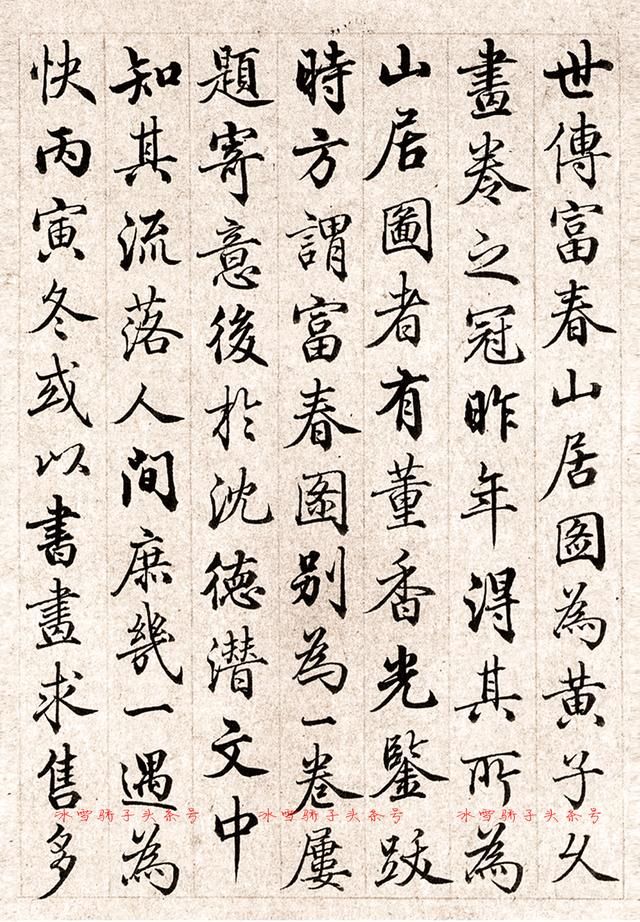 世傳富春山居图為黄子久
畫卷之冠昨年得其所為
山居圖者有董香光鑒跋
時方謂富春图别為一卷屢
題寄意後於沈德潜文中
知其流落人間庶幾一遇為
快丙寅冬或以書畫求售多
冰雪骄子头条号
冰雪骄子头条号
冰雪骄子头条号